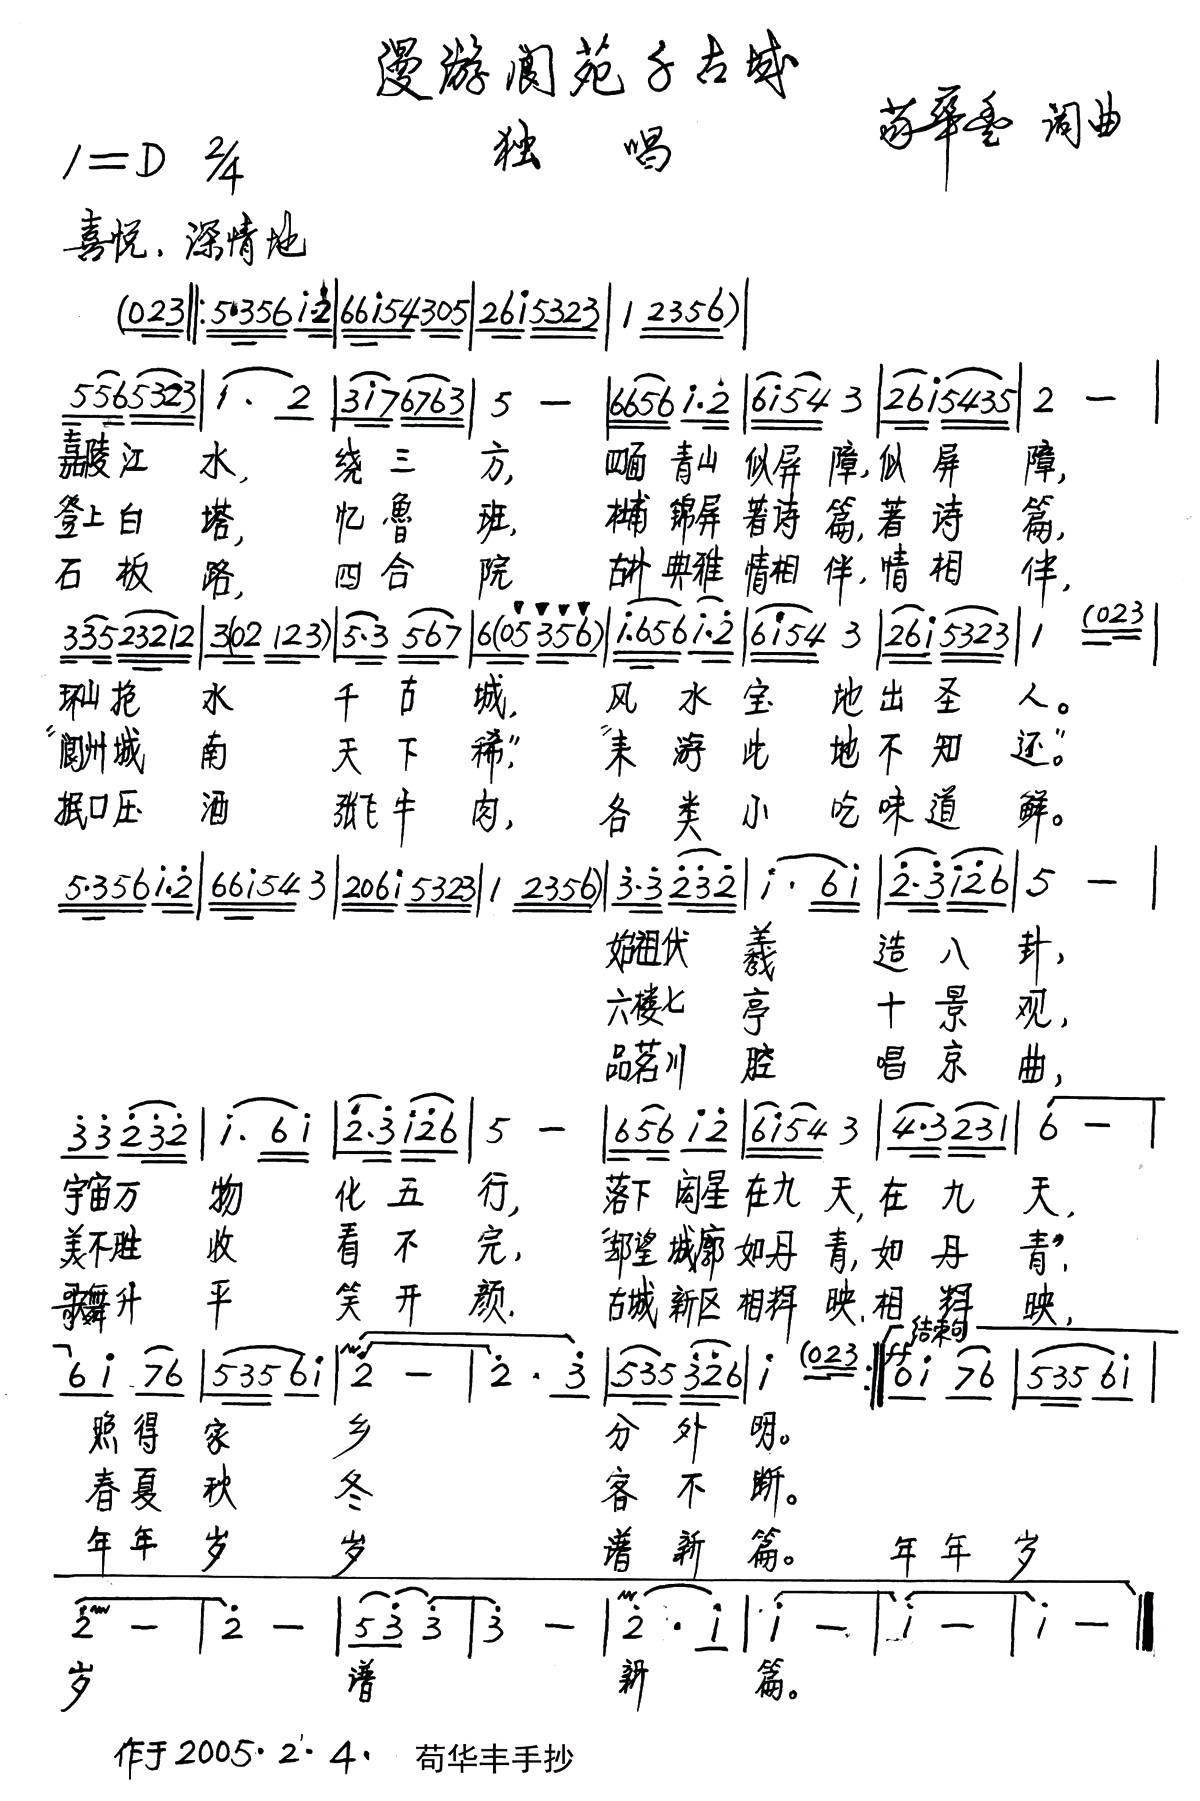 漫游阆苑千古城
荀华丰 词曲
独 唱
1=D 2/4
喜悦、深情地
(023‖:5·356i·2|66i54305|26i5323|1 2356)|
5565323|1· 2|3i76763|5 —|6656i·2|6i543|26i5435|2 —|
嘉陵江 水, 绕三 方, 四面青山似屏障,似屏 障,
登上白 塔, 忆鲁 班, 杜甫锦屏著诗篇,著诗 篇,
石板 路, 四合 院 古朴典雅情相伴,情相 伴,
33523212|3(02 123)|5·3 567|6(05356)|i·656i·2|6i54 3|26i5323|1 (023|
环山抱 水 千古 城, 风水宝 地出圣 人。
“阆州城 南 天下 稀”, “来游此 地不知 还”。
抿口压 酒 张飞牛 肉, 各类小 吃味道 鲜。
5·356i·2|66i543|206i5323|1 2356)|3·3232|i·6i|2·3i26|5 —|
始祖伏 羲 造八 卦,
六楼七 亭 十景 观,
品茗川 腔 唱京 曲,
33232|i·6i|2·3i26|5 —|656i2|6i543|4·3231|6 —|
宇宙万 物 化五 行, 落下闳星在九天,在九 天,
美不胜 收 看不 完, “却望城廓如丹青,如丹 青”,
歌舞升 平 笑开 颜. 古城新区相辉映,相辉 映,
结束句
6i 76|535 6i|2 —|2· 3|535326|i (023:‖ff0i 76|535 6i|
照得家 乡 分外 明。
春夏秋 冬 客不 断。
年年岁 岁 谱新 篇。 年年 岁
2 —|2 —|533|3 —|2· i|i —|i —|i —‖
岁 谱 新 篇。
作于2005·2·4· 荀华丰手抄